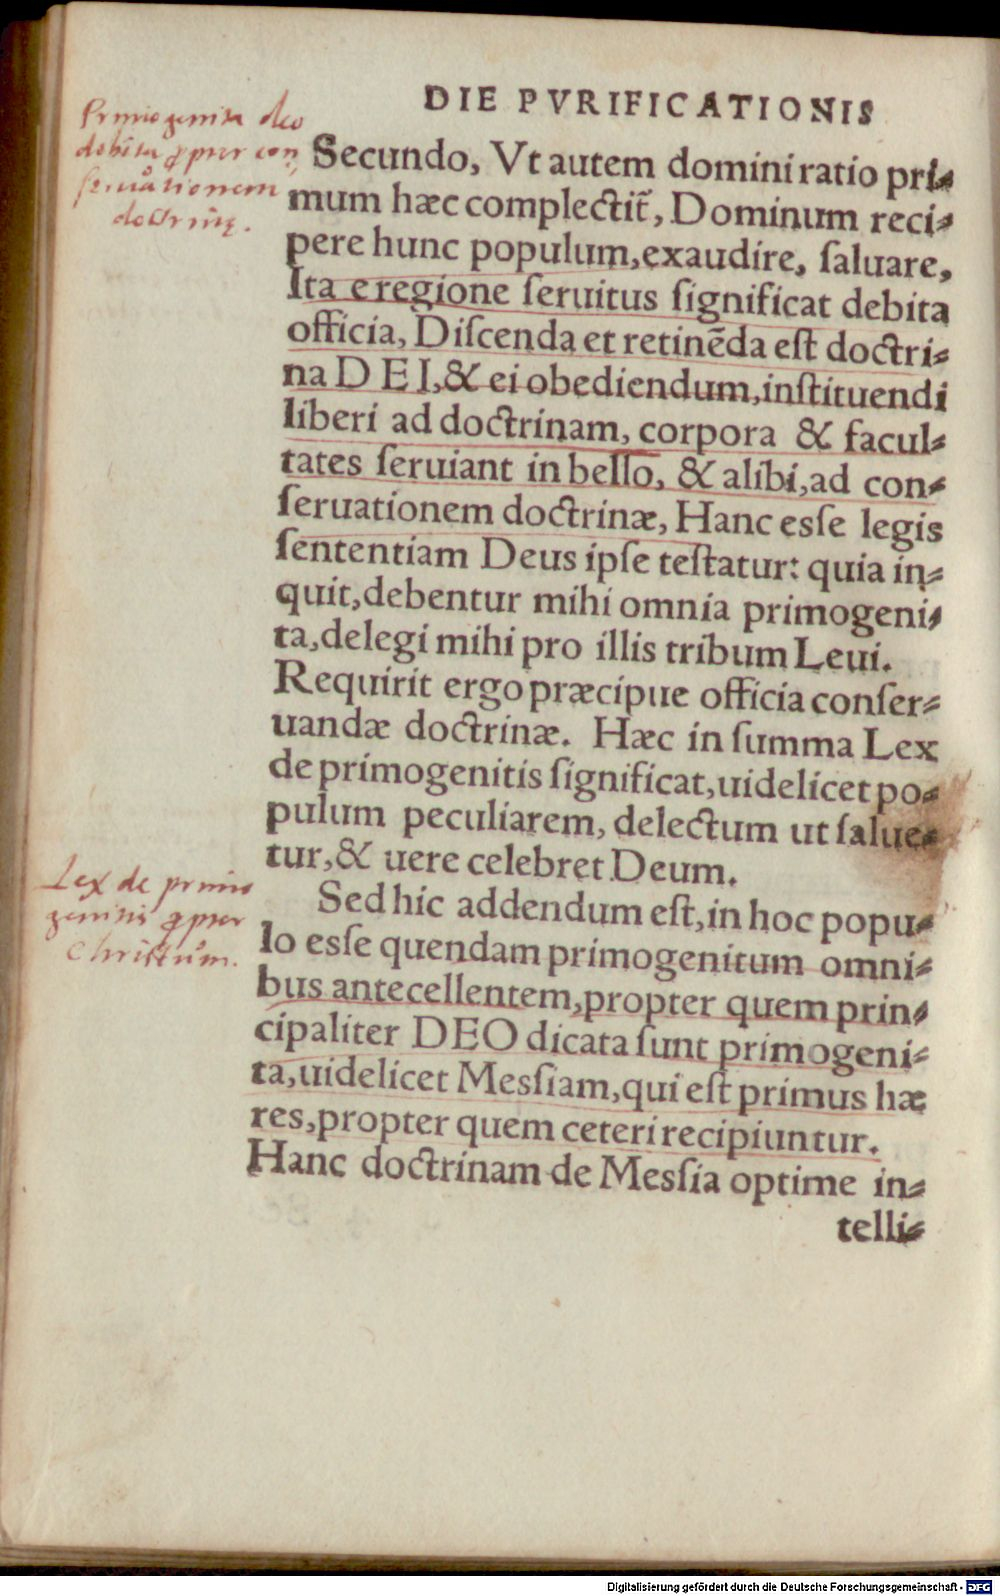 DIE PVRIFICATIONIS
Primogenita deo
debita ꝓpter con
seruationem
doctrinę.
Secundo, Vt autem domini ratio pri⸗
mum hæc complectit᷑, Dominum reci⸗
pere hunc populum, exaudire, ſaluare,
Ita e regione ſeruitus ſignificat debita
officia, Diſcenda et retinēda eſt doctri⸗
na DEI, & ei obediendum, inſtituendi
liberi ad doctrinam, corpora & facul⸗
tates ſeruiant in bello, & alibi, ad con⸗
ſeruationem doctrinæ, Hanc esſe legis
ſententiam Deus ipſe teſtatur: quia in⸗
quit, debentur mihi omnia primogeni⸗
ta, delegi mihi pro illis tribum Leui.
Requirit ergo præcipue officia conſer⸗
uandæ doctrinæ. Hæc in ſumma Lex
de primogenitis ſignificat, uidelicet po⸗
pulum peculiarem, delectum ut ſalue⸗
tur, & uere celebret Deum.
Lex de primo
genitis ꝓpter
Christum.
Sed hic addendum eſt, in hoc popu⸗
lo esſe quendam primogenitum omni⸗
bus antecellentem, propter quem prin⸗
cipaliter DEO dicata ſunt primogeni⸗
ta, uidelicet Mesſiam, qui eſt primus hæ
res, propter quem ceteri recipiuntur.
Hanc doctrinam de Mesſia optime in⸗
telli⸗
Digitalisierung gefördert durch die Deutsche Forschungsgemeinschaft - DFG